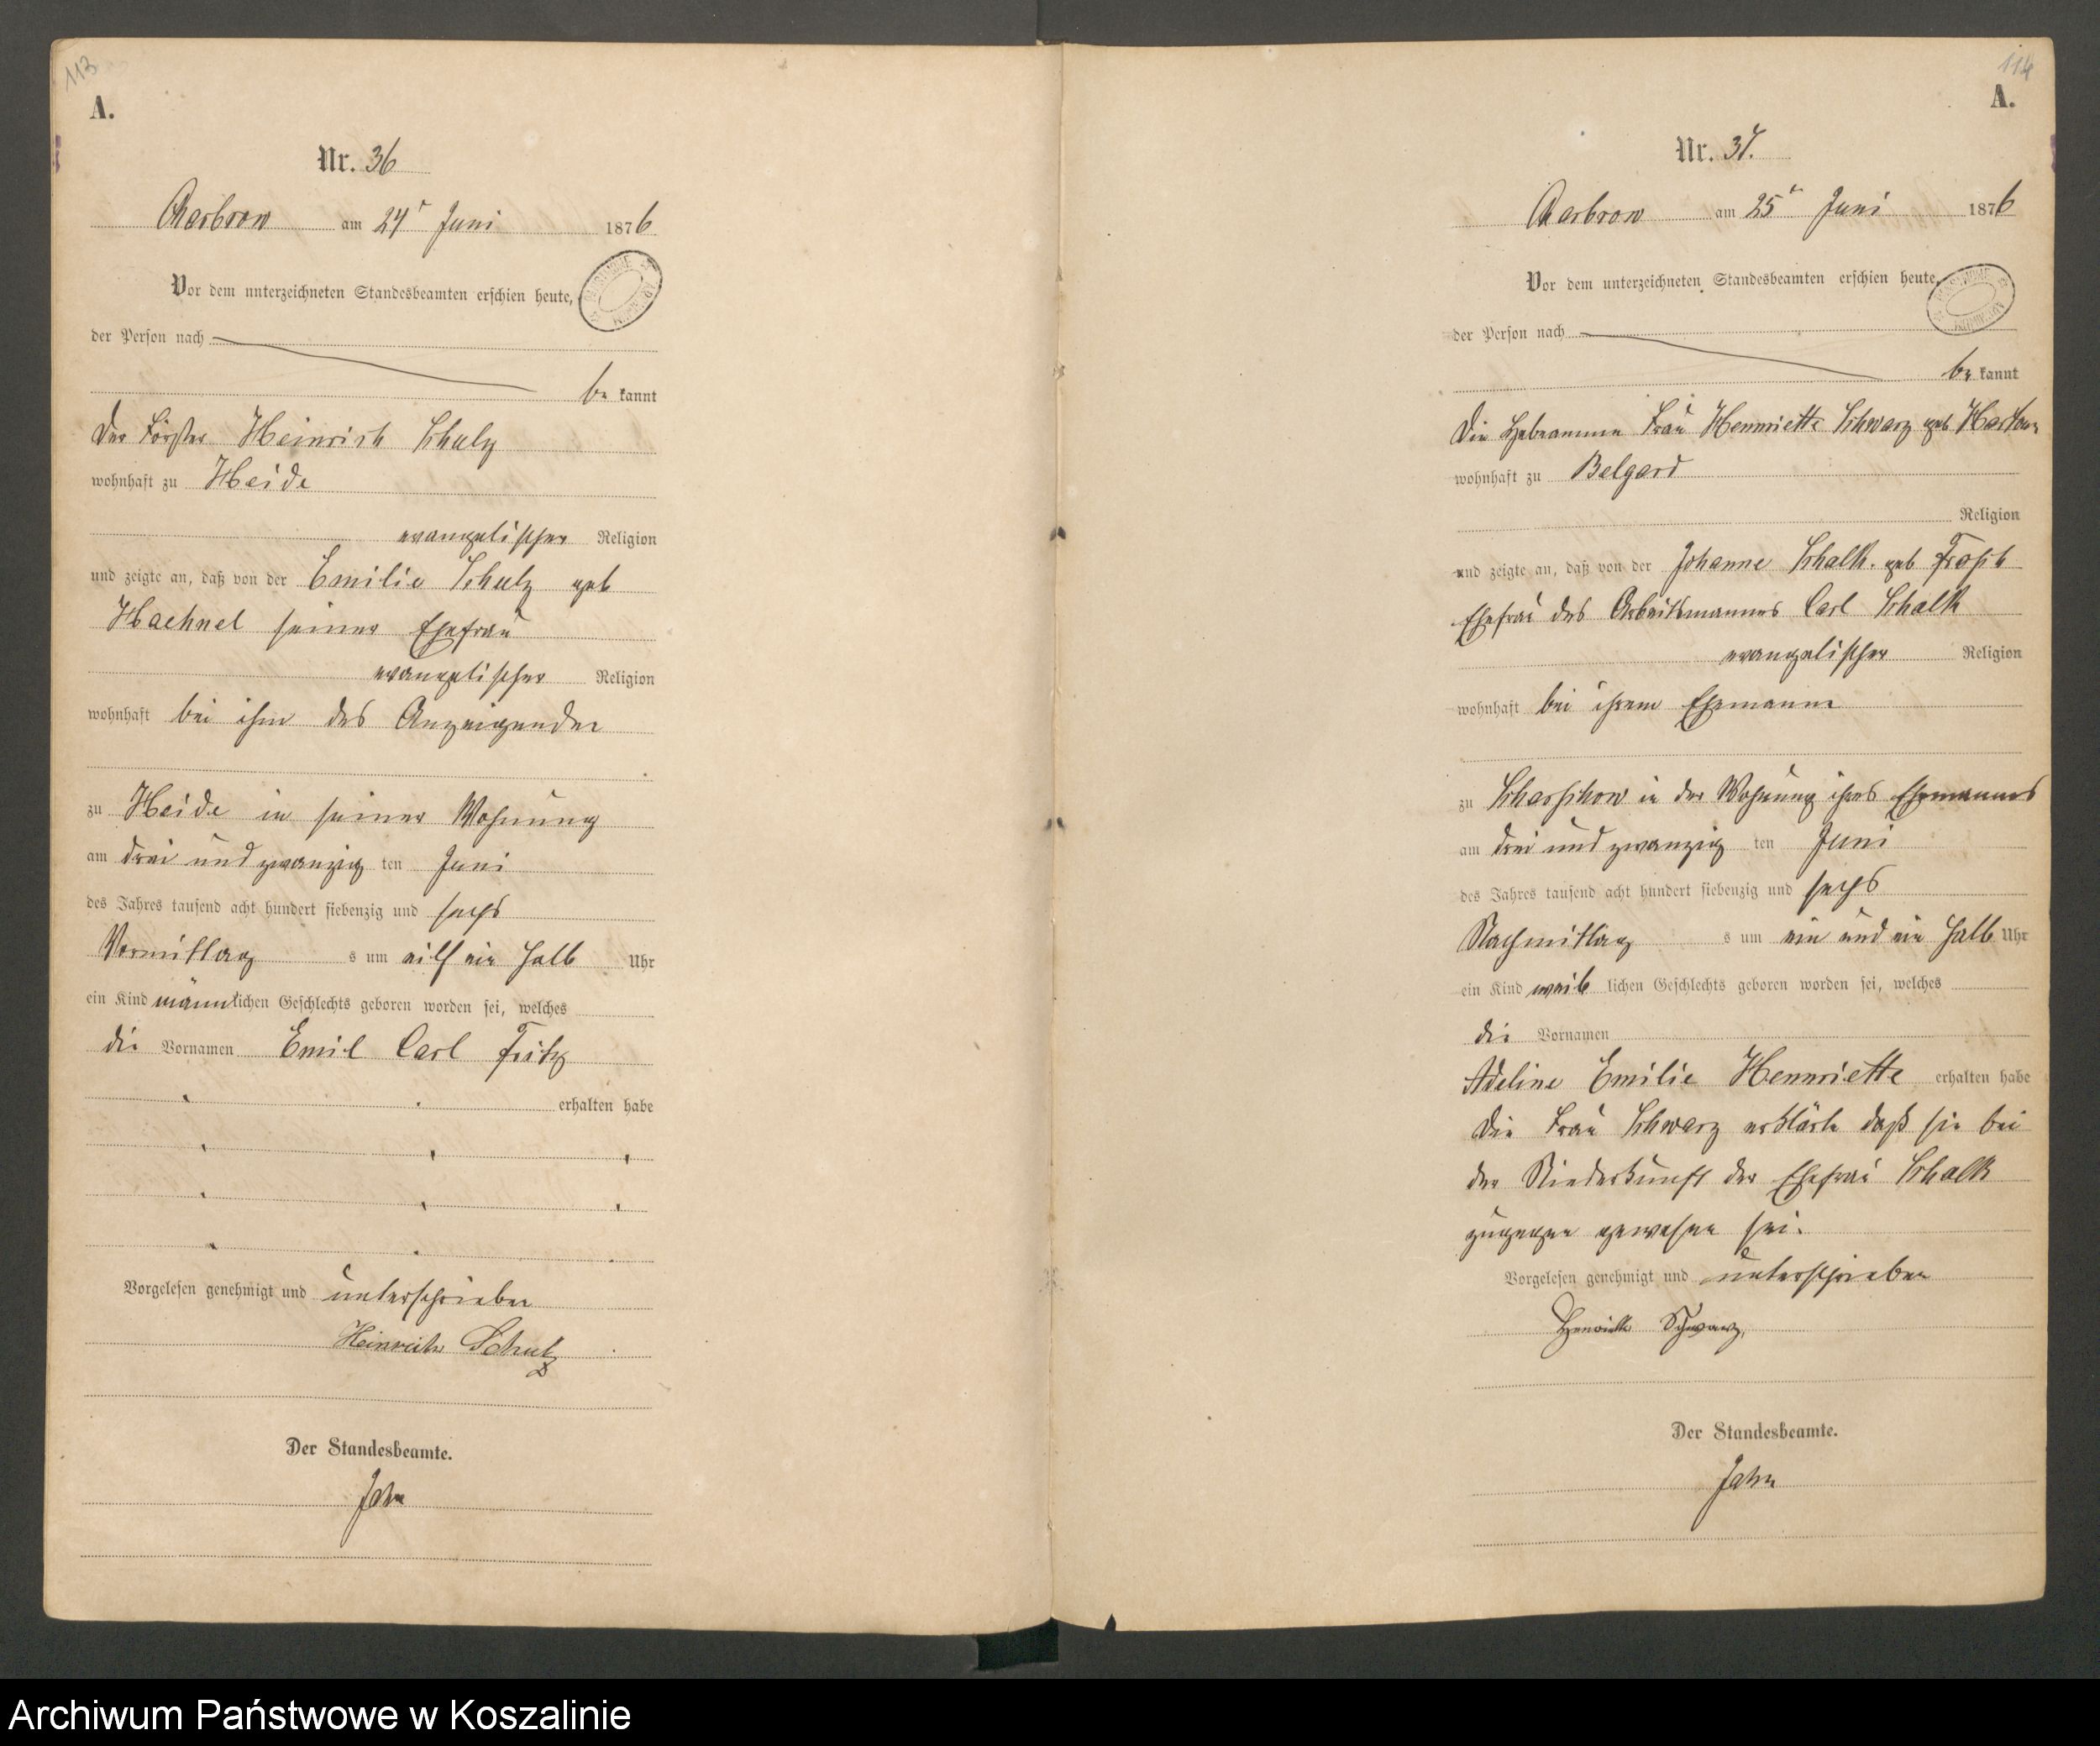 113
A.
Nr. 36
Charbrow am 24t Juni 1876
Vor dem unterzeichneten Standesbeamten erschien heute,
der Person nach
be kannt
Der Förster Heinrich Schulz
wohnhaft zu Heide
evangelischer Religion
und zeigte an, daß von der Emilie Schulz geb
Haehnel seiner Ehefrau
evangelischer Religion
wohnhaft bei ihm des Anzeigenden
zu Heide in seiner Wohnung
am drei und zwanzig ten Juni
des Jahres tausend acht hundert siebenzig und sechs
Vormittag s um eilf ein halb Uhr
ein Kind männlichen Geschlechts geboren worden sei, welches
die Vornamen Emil Carl Fritz
erhalten habe
Vorgelesen genehmigt und unterschrieben
Heinrich Schulz
Der Standesbeamte.
Jahn
114
A.
Nr. 37.
Charbrow am 25t Juni 1876
Vor dem unterzeichneten Standesbeamten erschien heute,
der Person nach
be kannt
Die Hebeamme Frau Hennriette Schwarz geb
wohnhaft zu Belgard
Religion
und zeigte an, daß von der Johanne Schalk. geb Frosch
Ehefrau des Arbeitsmannes Carl Schalk
evangelischer Religion
wohnhaft bei ihrem Ehemanne
zu Scharschow in der Wohnung ihres Ehemannes
am drei und zwanzig ten Juni
des Jahres tausend acht hundert siebenzig und sechs
Nachmittag s um ein und ein halb Uhr
ein Kind weib lichen Geschlechts geboren worden sei, welches
die Vornamen
Adeline Emilie Hennriette erhalten habe
Die Frau Schwarz erklärte daß sie bei
der Niederkunft der Ehefrau Schalk
zugegen gewesen sei.
Vorgelesen genehmigt und unterschrieben
Henriette Schwarz,
Der Standesbeamte.
Jahn
Archiwum Państwowe w Koszalinie